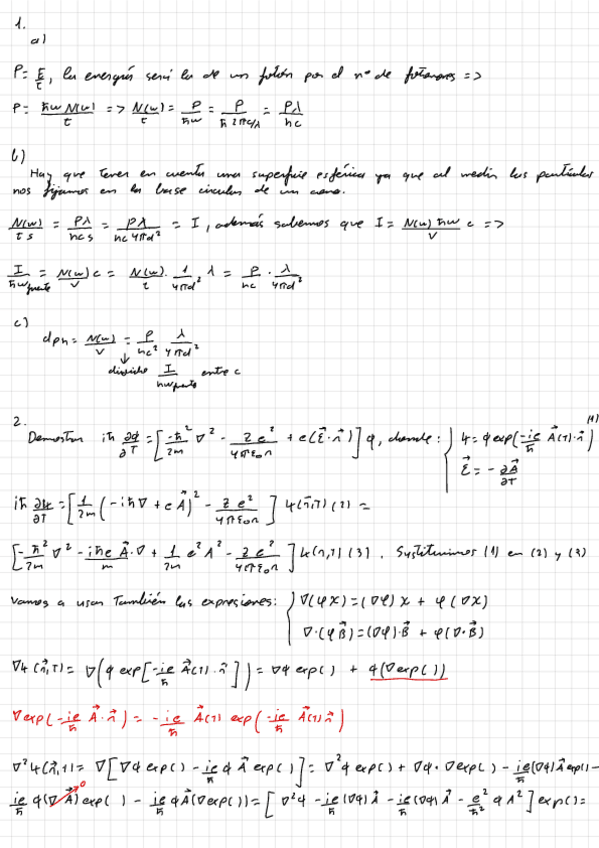 1.
a)
P = E/t, la energía será la de un fotón por el nº de fotones =>
P = ħw N(w)/t => N(w)/t = P/ħw = P/(ħ 2πc/λ) = Pλ/hc
b)
Hay que tener en cuenta una superficie esférica ya que al medir las partículas
nos fijamos en la base circular de un cono.
N(w)/(t s) = Pλ/(hc s) = Pλ/(hc 4πd²) = I, además sabemos que I = (N(w) ħw/V) c =>
I/ħw fuente = (N(w)/V) c = N(w)/t · 1/(4πd²) λ = P/hc · λ/(4πd²)
c)
dph = N(w)/V = P/hc² λ/(4πd²)
↓
divido I/ħw fuente entre c
2.
Demostrar iħ ∂φ/∂T = [-ħ²/2m ∇² - Ze²/(4πε₀r) + e(ε⃗·r⃗)] φ, donde: { Ψ = φ exp(-ie/ħ A⃗(T)·r⃗) (1)
ε⃗ = -∂A⃗/∂T
iħ ∂Ψ/∂T = [1/2m (-iħ∇ + eA⃗)² - Ze²/(4πε₀r)] Ψ(r⃗,T) (2) =
[-ħ²/2m ∇² - iħe/m A⃗·∇ + 1/2m e²A² - Ze²/(4πε₀r)] Ψ(r,T) (3). Sustituimos (1) en (2) y (3)
Vamos a usar también las expresiones: { ∇(φX) = (∇φ)X + φ(∇X)
∇·(φB⃗) = (∇φ)·B⃗ + φ(∇·B⃗)
∇Ψ(r⃗,T) = ∇(φ exp[-ie/ħ A⃗(T)·r⃗]) = ∇φ exp() + φ(∇exp())
∇exp(-ie/ħ A⃗·r⃗) = -ie/ħ A⃗(T) exp(-ie/ħ A⃗(T)r⃗)
∇²Ψ(r⃗,T) = ∇[∇φ exp() - ie/ħ φ A⃗ exp()] = ∇²φ exp() + ∇φ·∇exp() - ie/ħ (∇φ)A⃗ exp() -
ie/ħ φ(∇A⃗)⁰ exp() - ie/ħ φA⃗(∇exp()) = [∇²φ - ie/ħ (∇φ)A⃗ - ie/ħ (∇φ)A⃗ - e²/ħ² φA²] exp() =